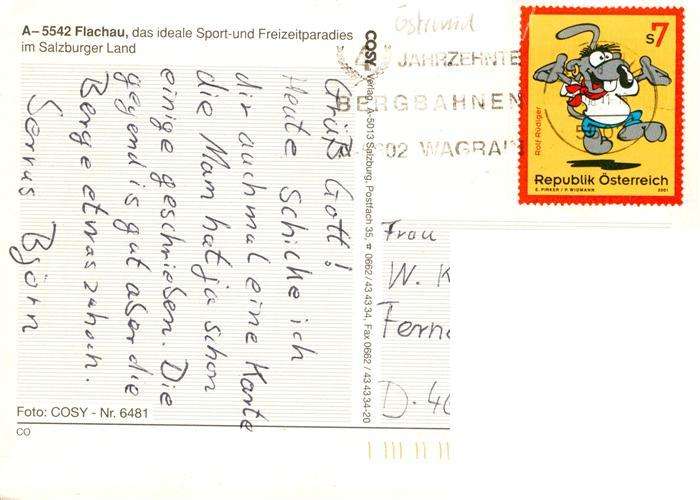 A–5542 Flachau, das ideale Sport-und Freizeitparadies
im Salzburger Land
Grüß Gott!
Heute schicke ich
dir auchmal eine Karte
die Mam hat ja schon
einige geschrieben. Die
gegend is gut aber die
Berge etwas zu hoch.
Servus Björn
Foto: COSY - Nr. 6481
CO
COSY Verlag, A-5013 Salzburg, Postfach 35, ☎ 0662/43 43 34, Fax 0662 / 43 43 34-20
4 JAHRZEHNTE
BERGBAHNEN
02 WAGRAIN
S7
Rolf Rüdiger
Republik Österreich
G. PIRKER / P. WIDMANN 2001
Frau
W. K
Ferne
D-46